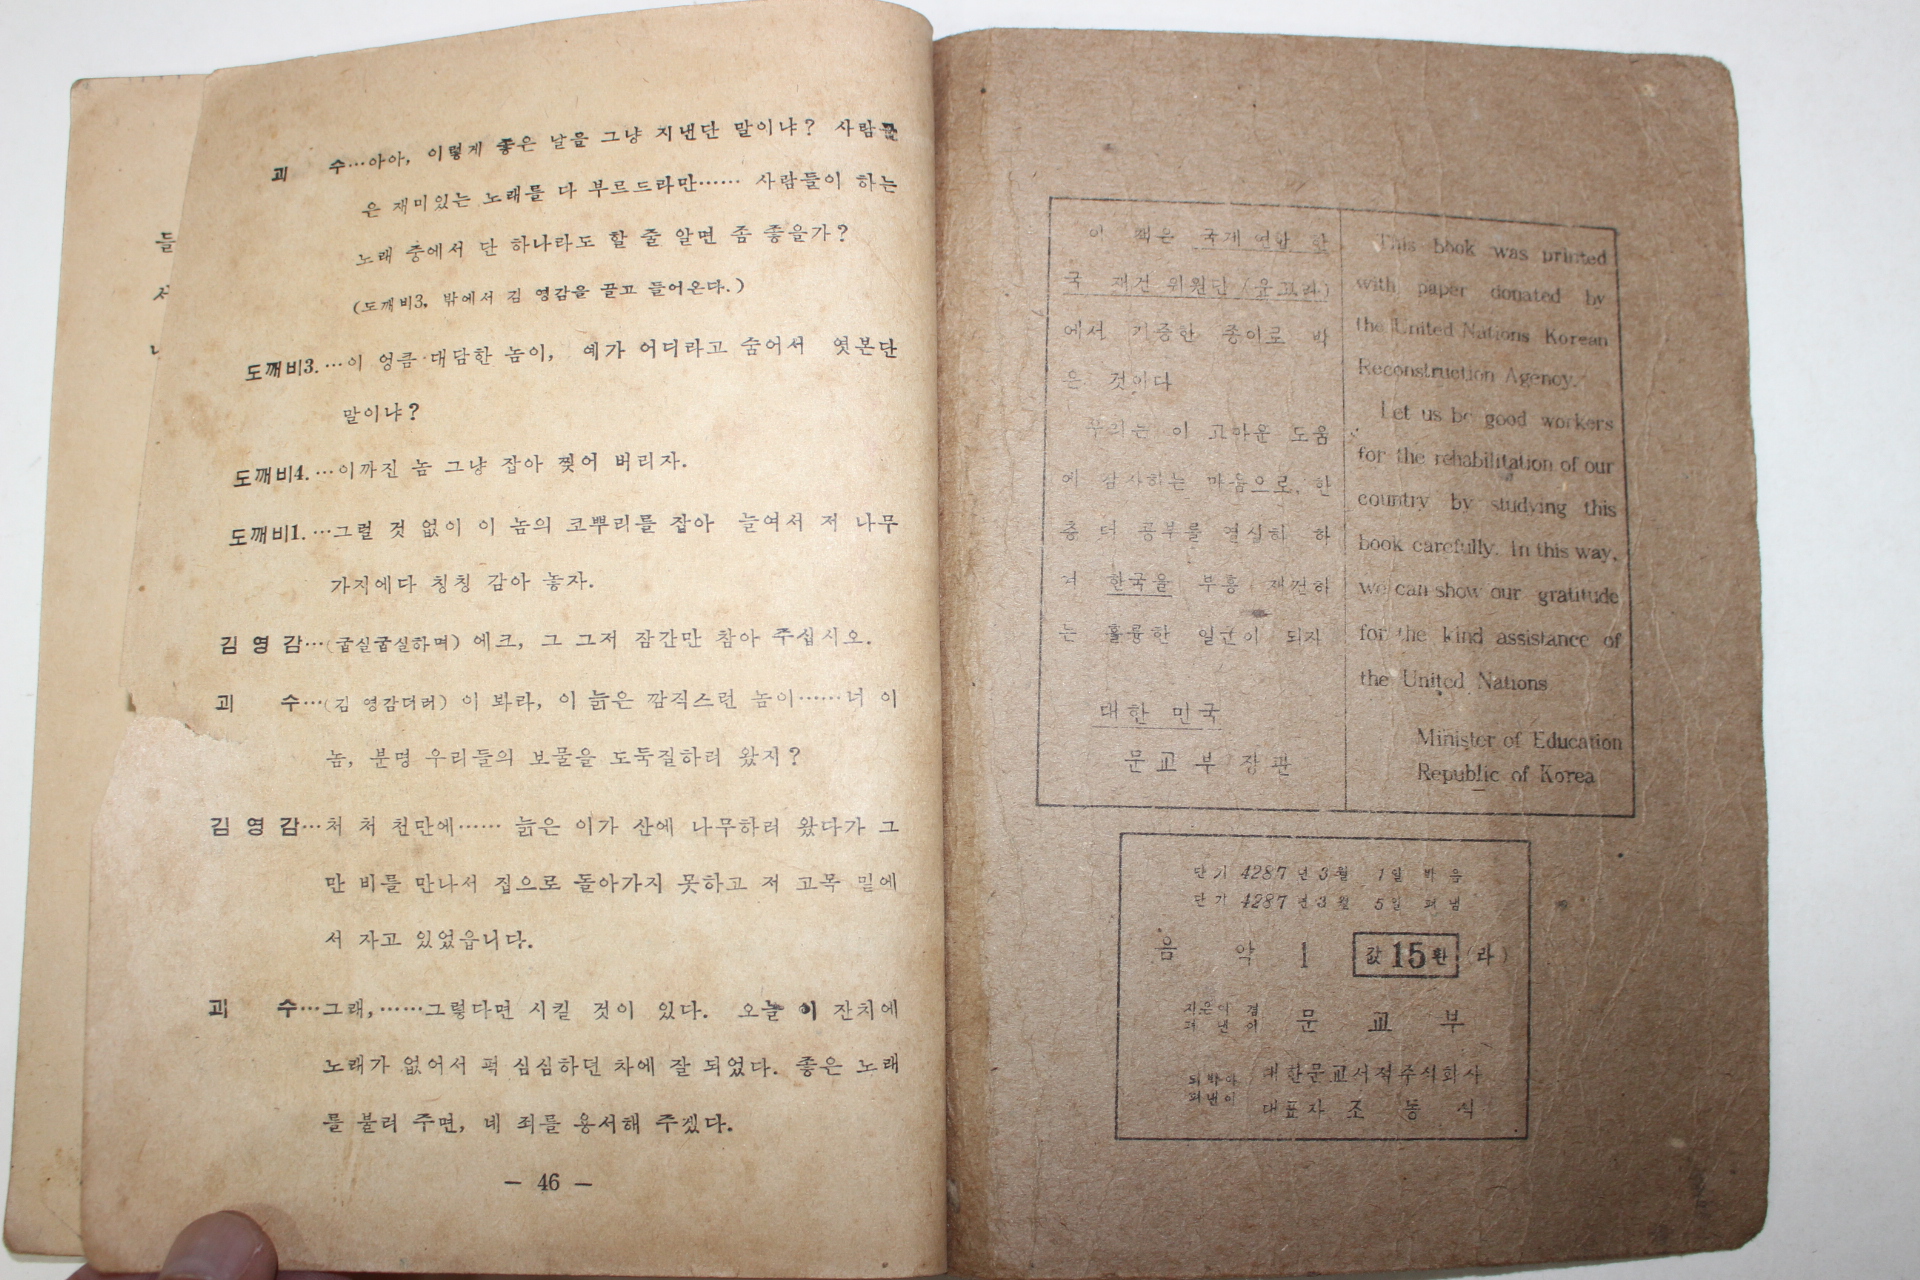 들
서
괴 수…아아, 이렇게 좋은 날을 그냥 지낸단 말이냐? 사람들
은 재미있는 노래를 다 부르드라만…… 사람들이 하는
노래 중에서 단 하나라도 할 줄 알면 좀 좋을가?
(도깨비3, 밖에서 김 영감을 끌고 들어온다.)
도깨비3.…이 엉큼 대담한 놈이, 예가 어디라고 숨어서 엿본단
말이냐?
도깨비4.…이까진 놈 그냥 잡아 찢어 버리자.
도깨비1.…그럴 것 없이 이 놈의 코뿌리를 잡아 늘여서 저 나무
가지에다 칭칭 감아 놓자.
김 영 감…(굽실굽실하며) 에크, 그 그저 잠간만 참아 주십시오.
괴 수…(김 영감더러) 이 봐라, 이 늙은 깜직스런 놈이……너 이
놈, 분명 우리들의 보물을 도둑질하러 왔지?
김 영 감…처 처 천만에…… 늙은 이가 산에 나무하러 왔다가 그
만 비를 만나서 집으로 돌아가지 못하고 저 고목 밑에
서 자고 있었읍니다.
괴 수…그래,……그렇다면 시킬 것이 있다. 오늘 이 잔치에
노래가 없어서 퍽 심심하던 차에 잘 되었다. 좋은 노래
를 불러 주면, 네 죄를 용서해 주겠다.
— 46 —
이 책은 국제 연합 한
국 재건 위원단 (운끄라)
에서 기증한 종이로 박
은 것이다
우리는 이 고마운 도움
에 감사하는 마음으로, 한
층 더 공부를 열심히 하
여 한국을 부흥 재건하
는 훌륭한 일군이 되자
대한 민국
문교부장관
This book was printed
with paper donated by
the United Nations Korean
Reconstruction Agency.
Let us be good workers
for the rehabilitation of our
country by studying this
book carefully. In this way,
we can show our gratitude
for the kind assistance of
the United Nations
Minister of Education
Republic of Korea
단기 4287년 3월 1일 박음
단기 4287년 3월 5일 펴냄
음 악 1 값 15환 (라)
지은이 겸
펴낸이 문 교 부
되박아
펴낸이 대한문교서적주식회사
대표자 조 동 식